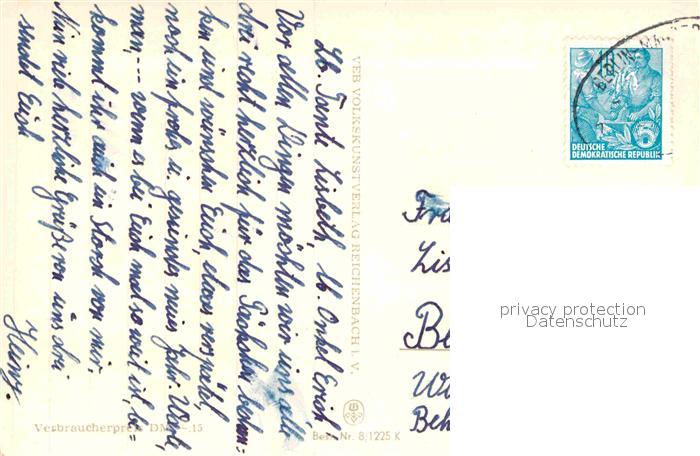 Lb. Tante Lisbeth, lb. Onkel Erich!
Vor allen Dingen möchten wir uns alle
drei recht herzlich für das Päckchen bedan=
ken und wünschen Euch, etwas verspätet,
noch ein frohes u. gesundes neues Jahr.
man, -- wenn es bei Euch mal so weit ist, be=
kommt ihr auch ein Storch von mir.
Nun viele herzliche Grüße von uns drei
sendet Euch
Heinz.
VEB VOLKSKUNSTVERLAG REICHENBACH i. V.
Verbraucherpreis DM -.15
Best. Nr. 8/1225 K
DEUTSCHE
DEMOKRATISCHE REPUBLIK
5
BERLIN
Fr
Lis
Be
W
Beh
privacy protection
Datenschutz